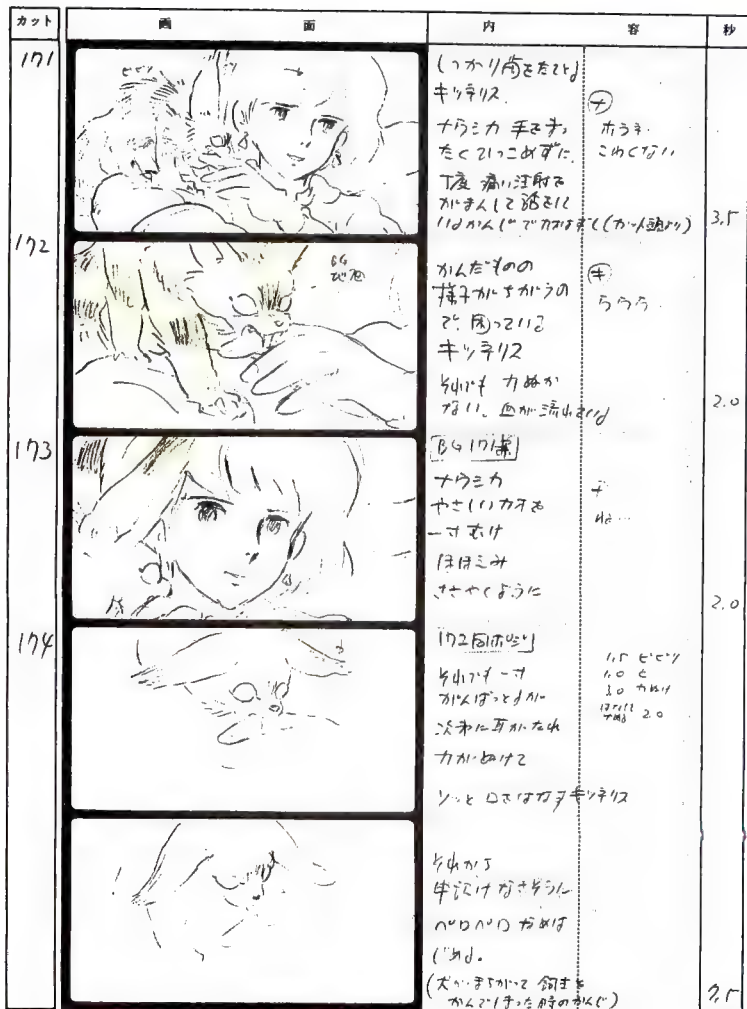 カット 画 面 内 容 秒
171
ビビリ
しっかり歯をたてる
キツネリス
ナウシカ 手をまっ
たくひっこめずに、
丁度 痛い注射を
がまんして語をし
いるかんじで (カット頭より)
ナ
ホラネ
こわくない
3.5
172
BG
かんだものの
様子がちがうの
で、困っている
キツネリス
それでも 力ぬか
ない、血が流れている
キ
ううう
2.0
173
BG 171兼
ナウシカ
やさしいカオを
一寸むけ
ほほえみ
ささやくように
ナ
ね…
2.0
174
172同ポジ
それでも一寸
がんばっとるが
次第に耳がたれ
力がぬけて
ソッと口をはなすキツネリス
1.5 ビビリ
1.0 と
3.0 力ぬけ
はなして
なめる 2.0
それから
申訳けなさそうに
ペロペロなめは
じめる。
(犬がまちがって飼主を
かんでしまった時のかんじ)
7.5